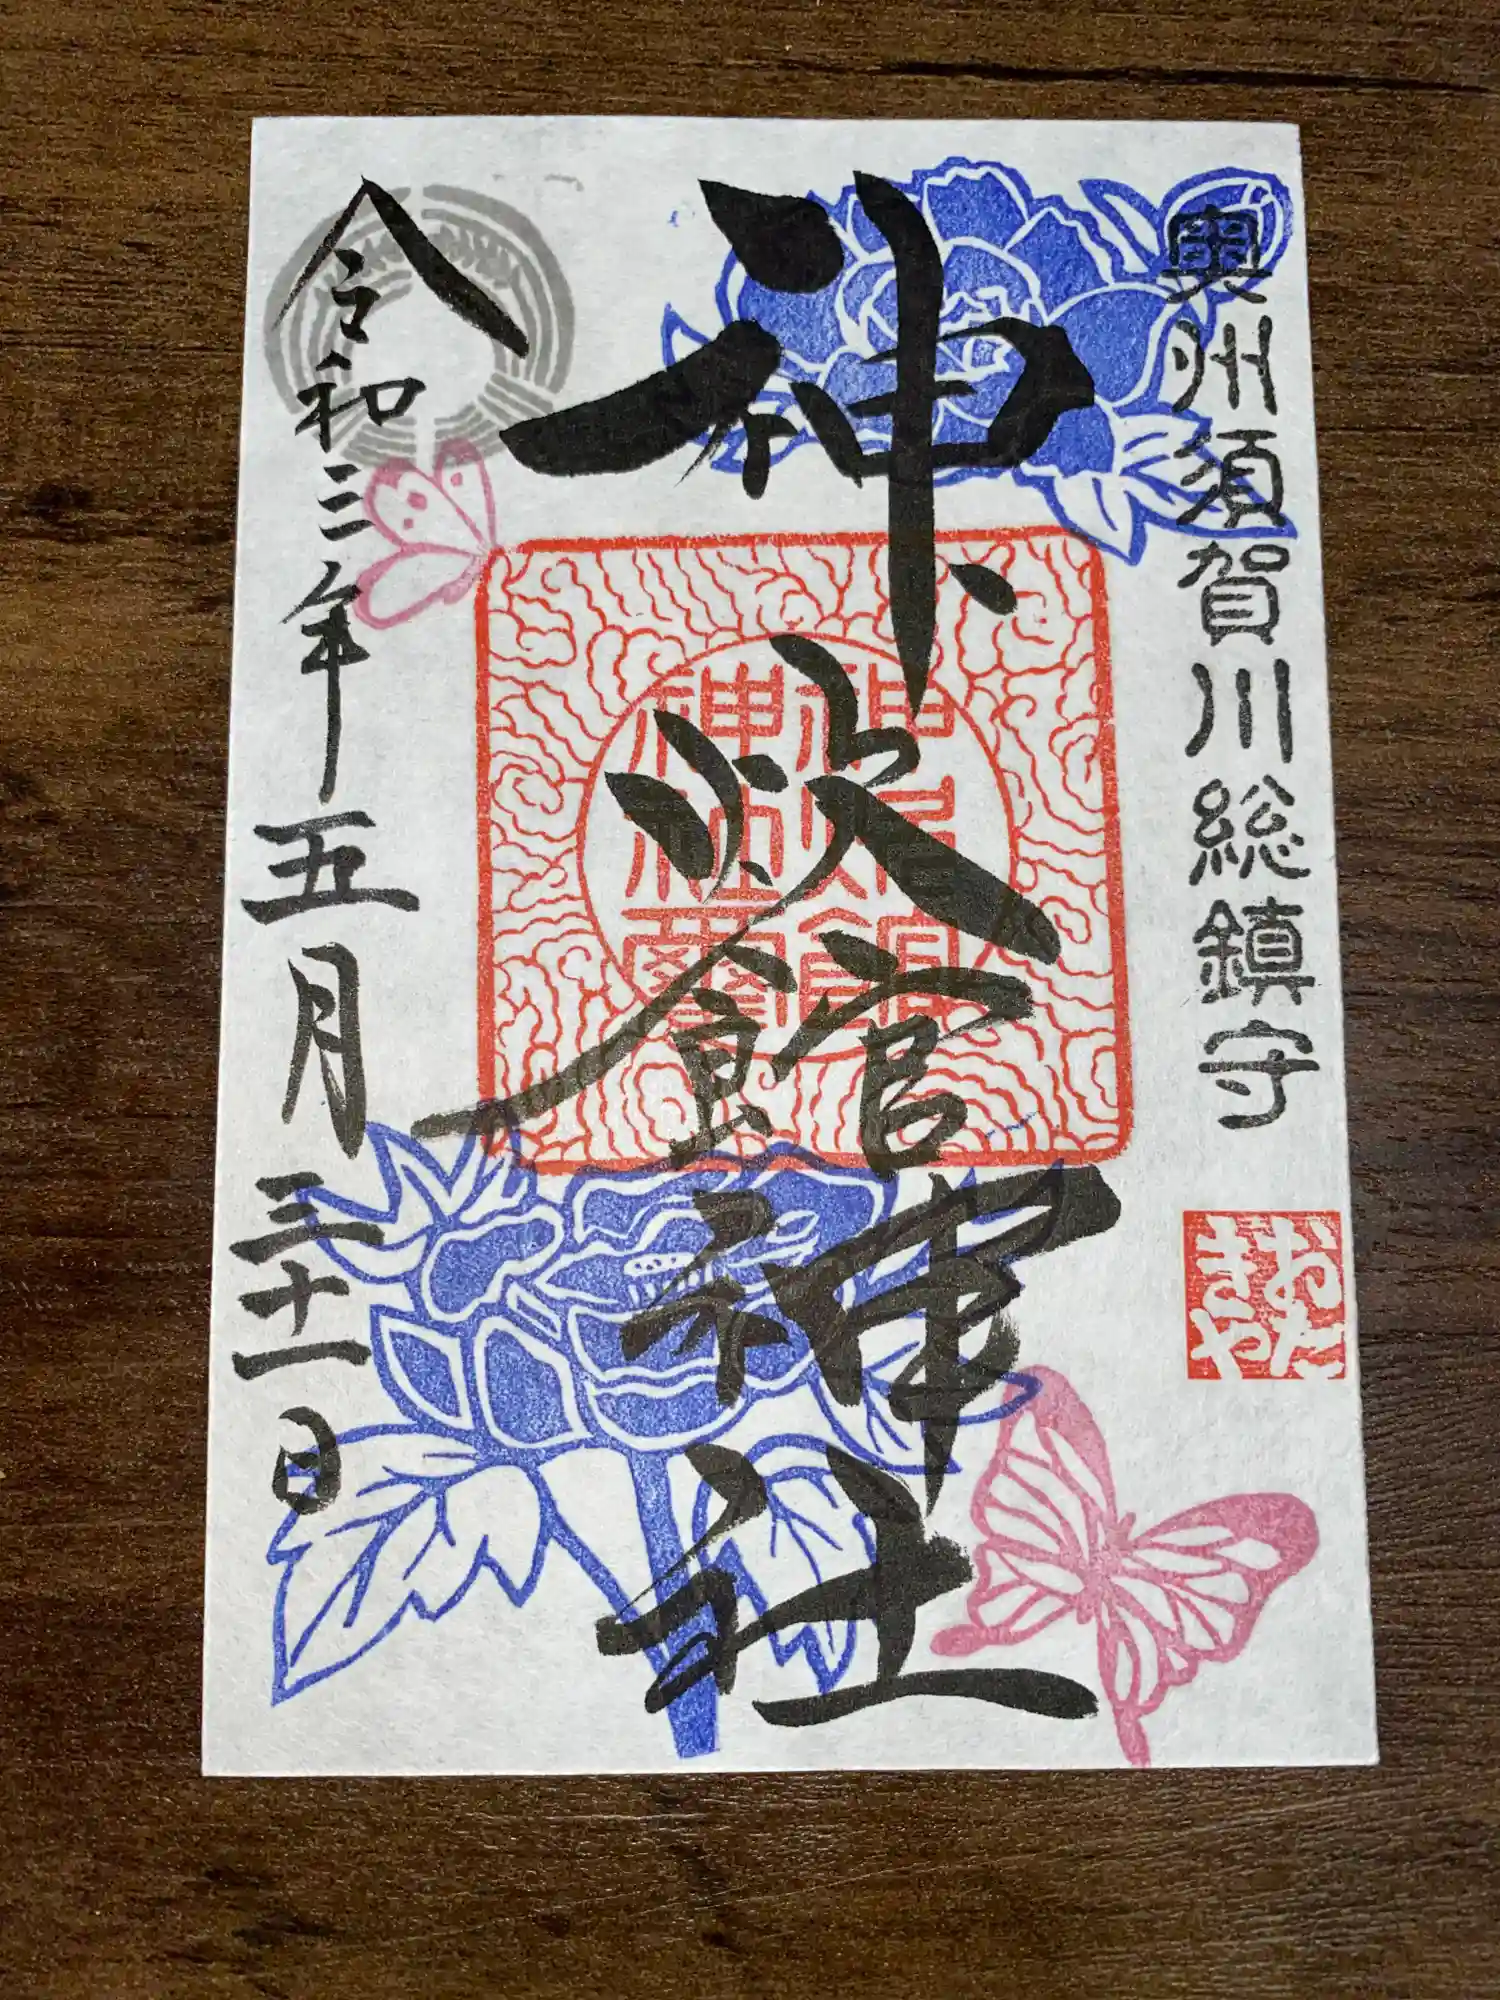 奥州須賀川総鎮守
おた
きや
神炊館神社
神炊館
神社璽
令和三年五月三十一日